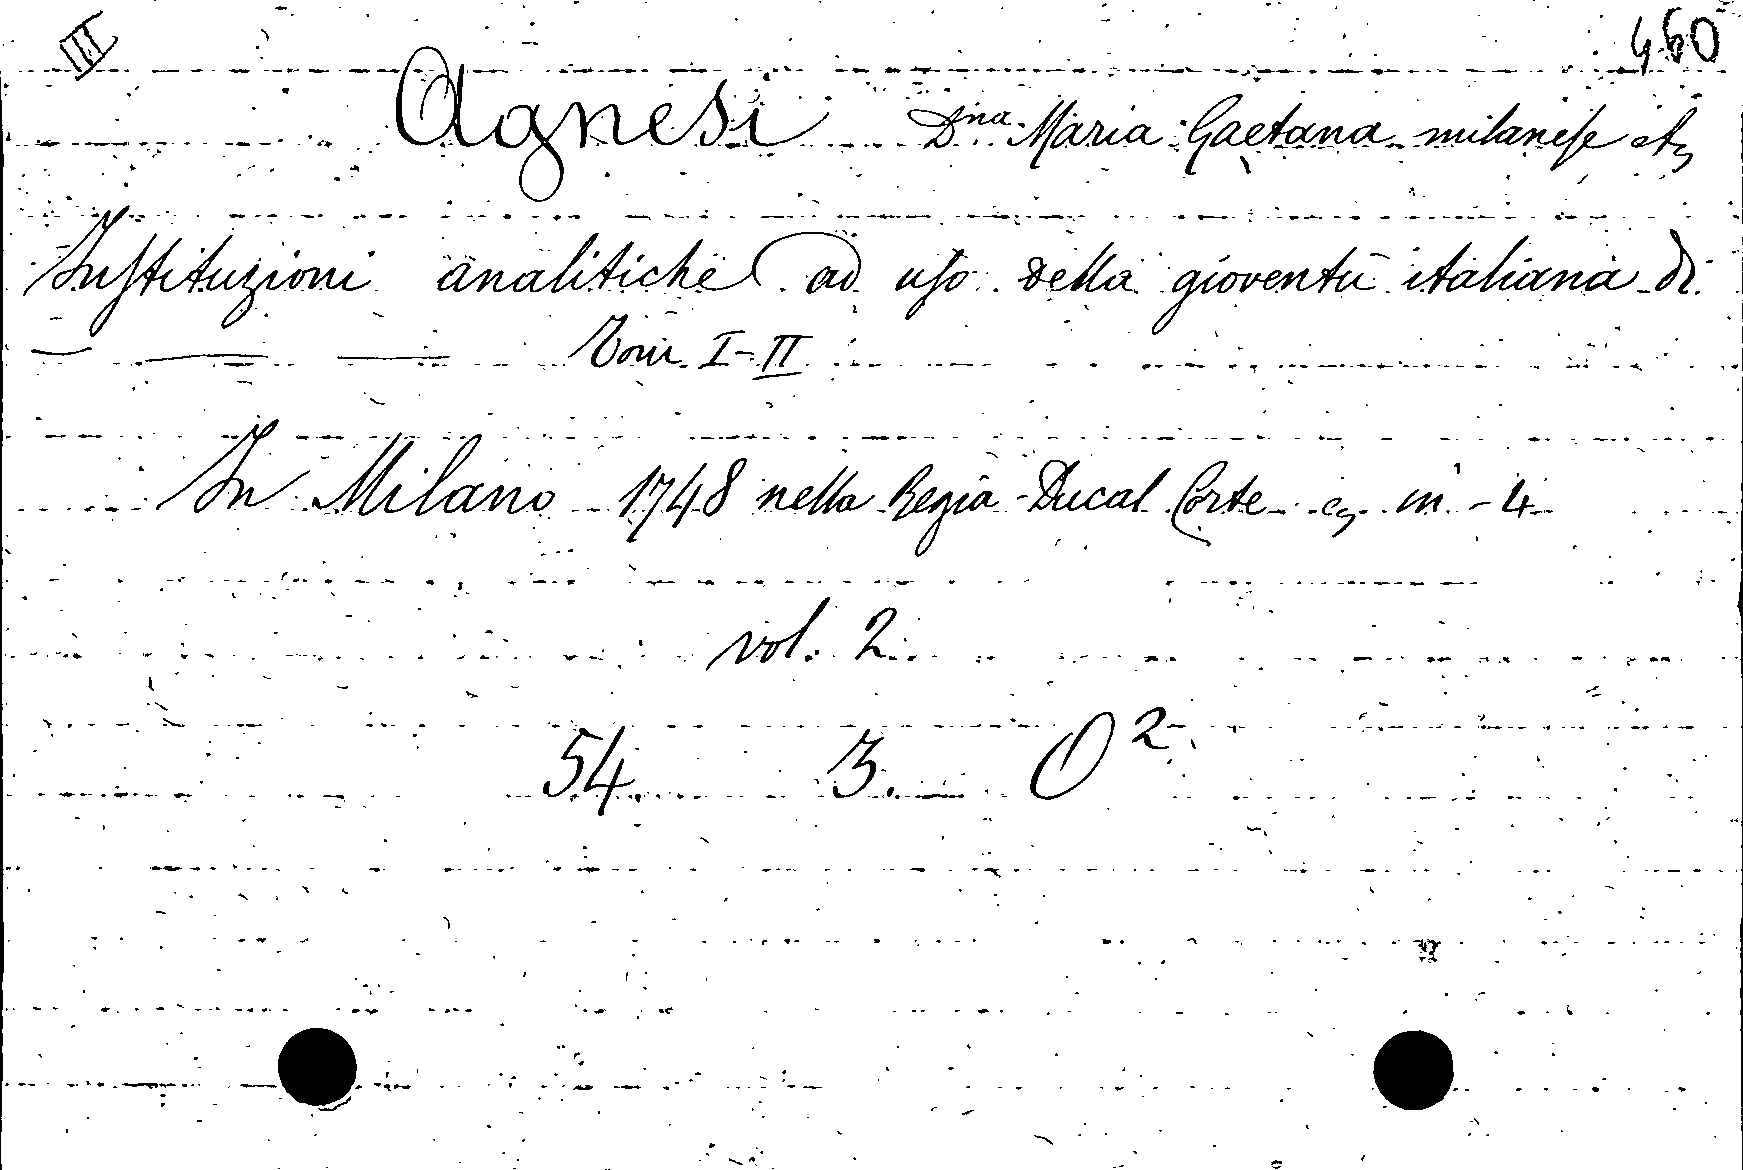 III 460
Agnesi Dna Maria Gaetana milaneſe
Inſtituzioni analitiche ad uſo della gioventù italiana di
— — — Tomi I-II
In Milano 1748 nella Regia-Ducal Corte in-4
vol. 2.
54. 3. O 2.